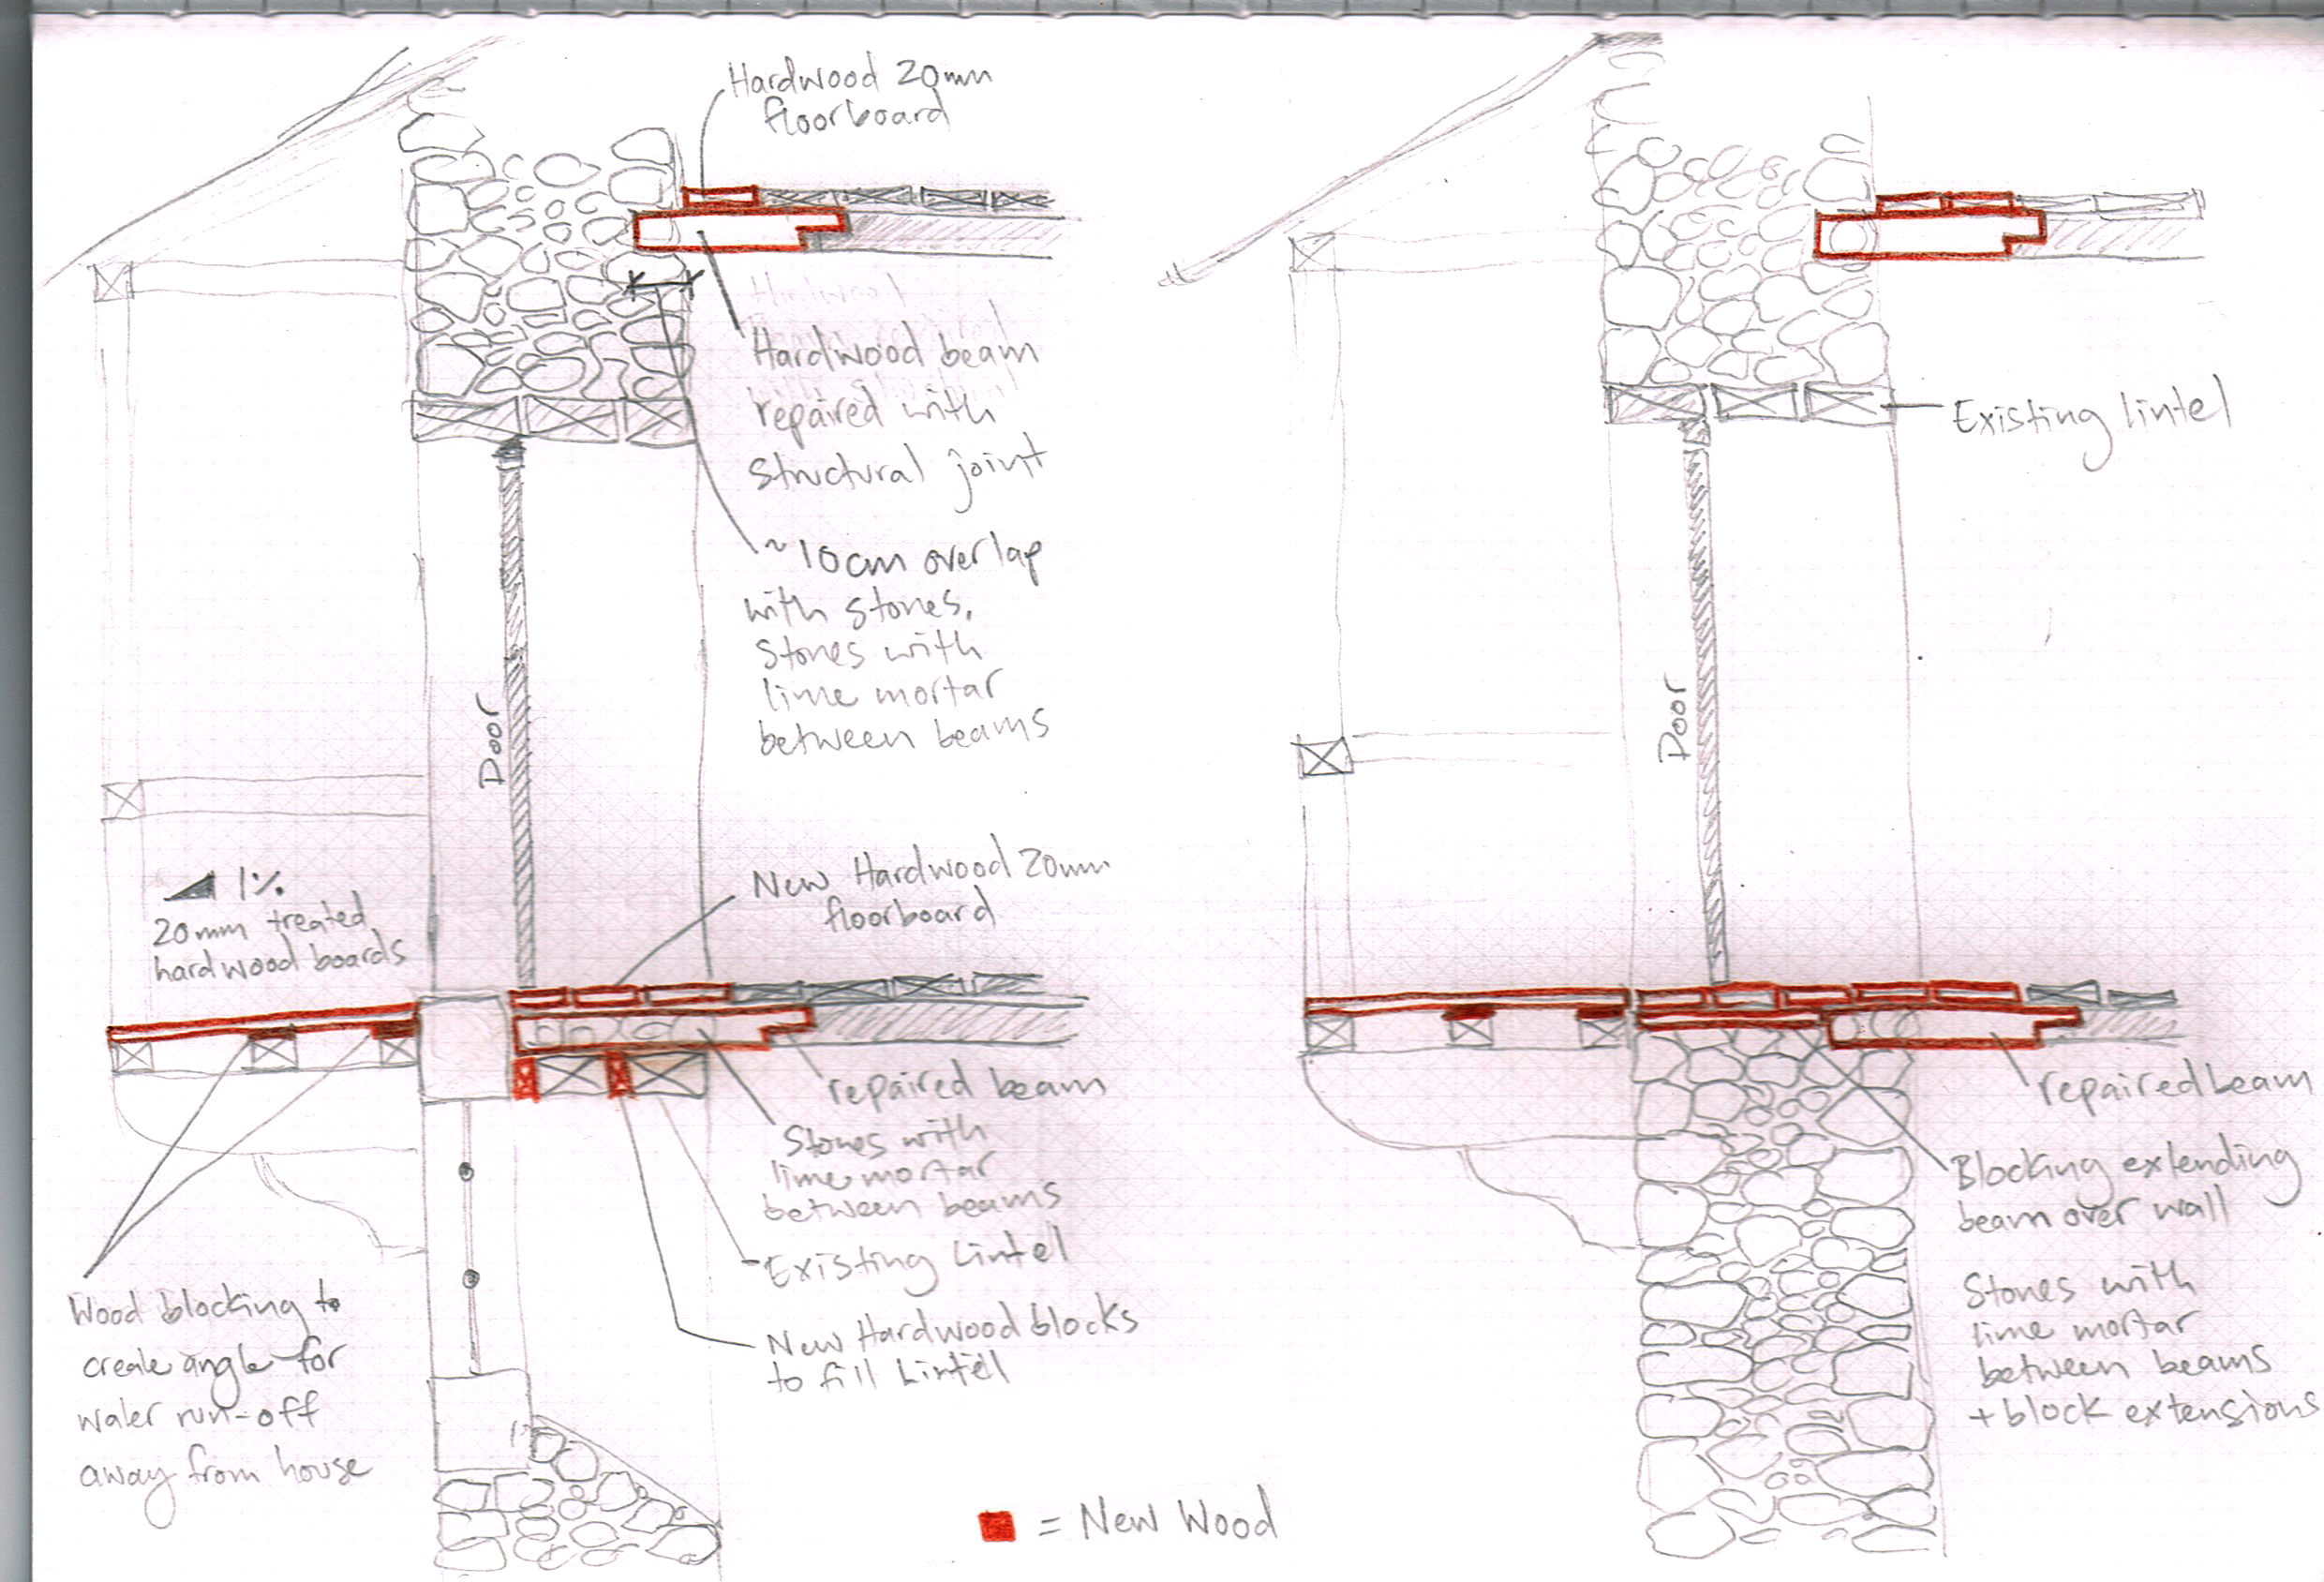 Hardwood 20mm
floorboard
Hardwood beam
repaired with
structural joint
~10cm overlap
with stones,
stones with
lime mortar
between beams
Door
1%
20mm treated
hardwood boards
New Hardwood 20mm
floorboard
repaired beam
Stones with
lime mortar
between beams
Existing Lintel
New Hardwood blocks
to fill Lintell
Wood blocking to
create angle for
water run-off
away from house
= New Wood
Existing lintel
Door
repaired beam
Blocking extending
beam over wall
Stones with
lime mortar
between beams
+ block extensions